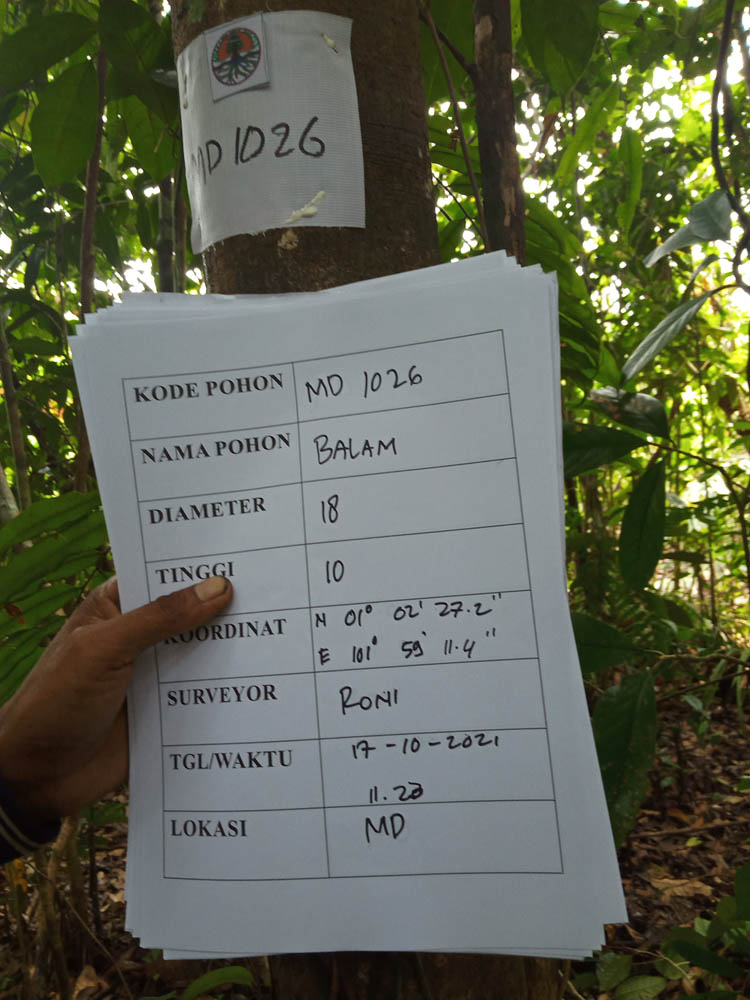 MD 1026
KODE POHON MD 1026
NAMA POHON BALAM
DIAMETER 18
TINGGI 10
KOORDINAT N 01° 02' 27.2"
E 101° 59' 11.4"
SURVEYOR RONI
TGL/WAKTU 17-10-2021
11.20
LOKASI MD